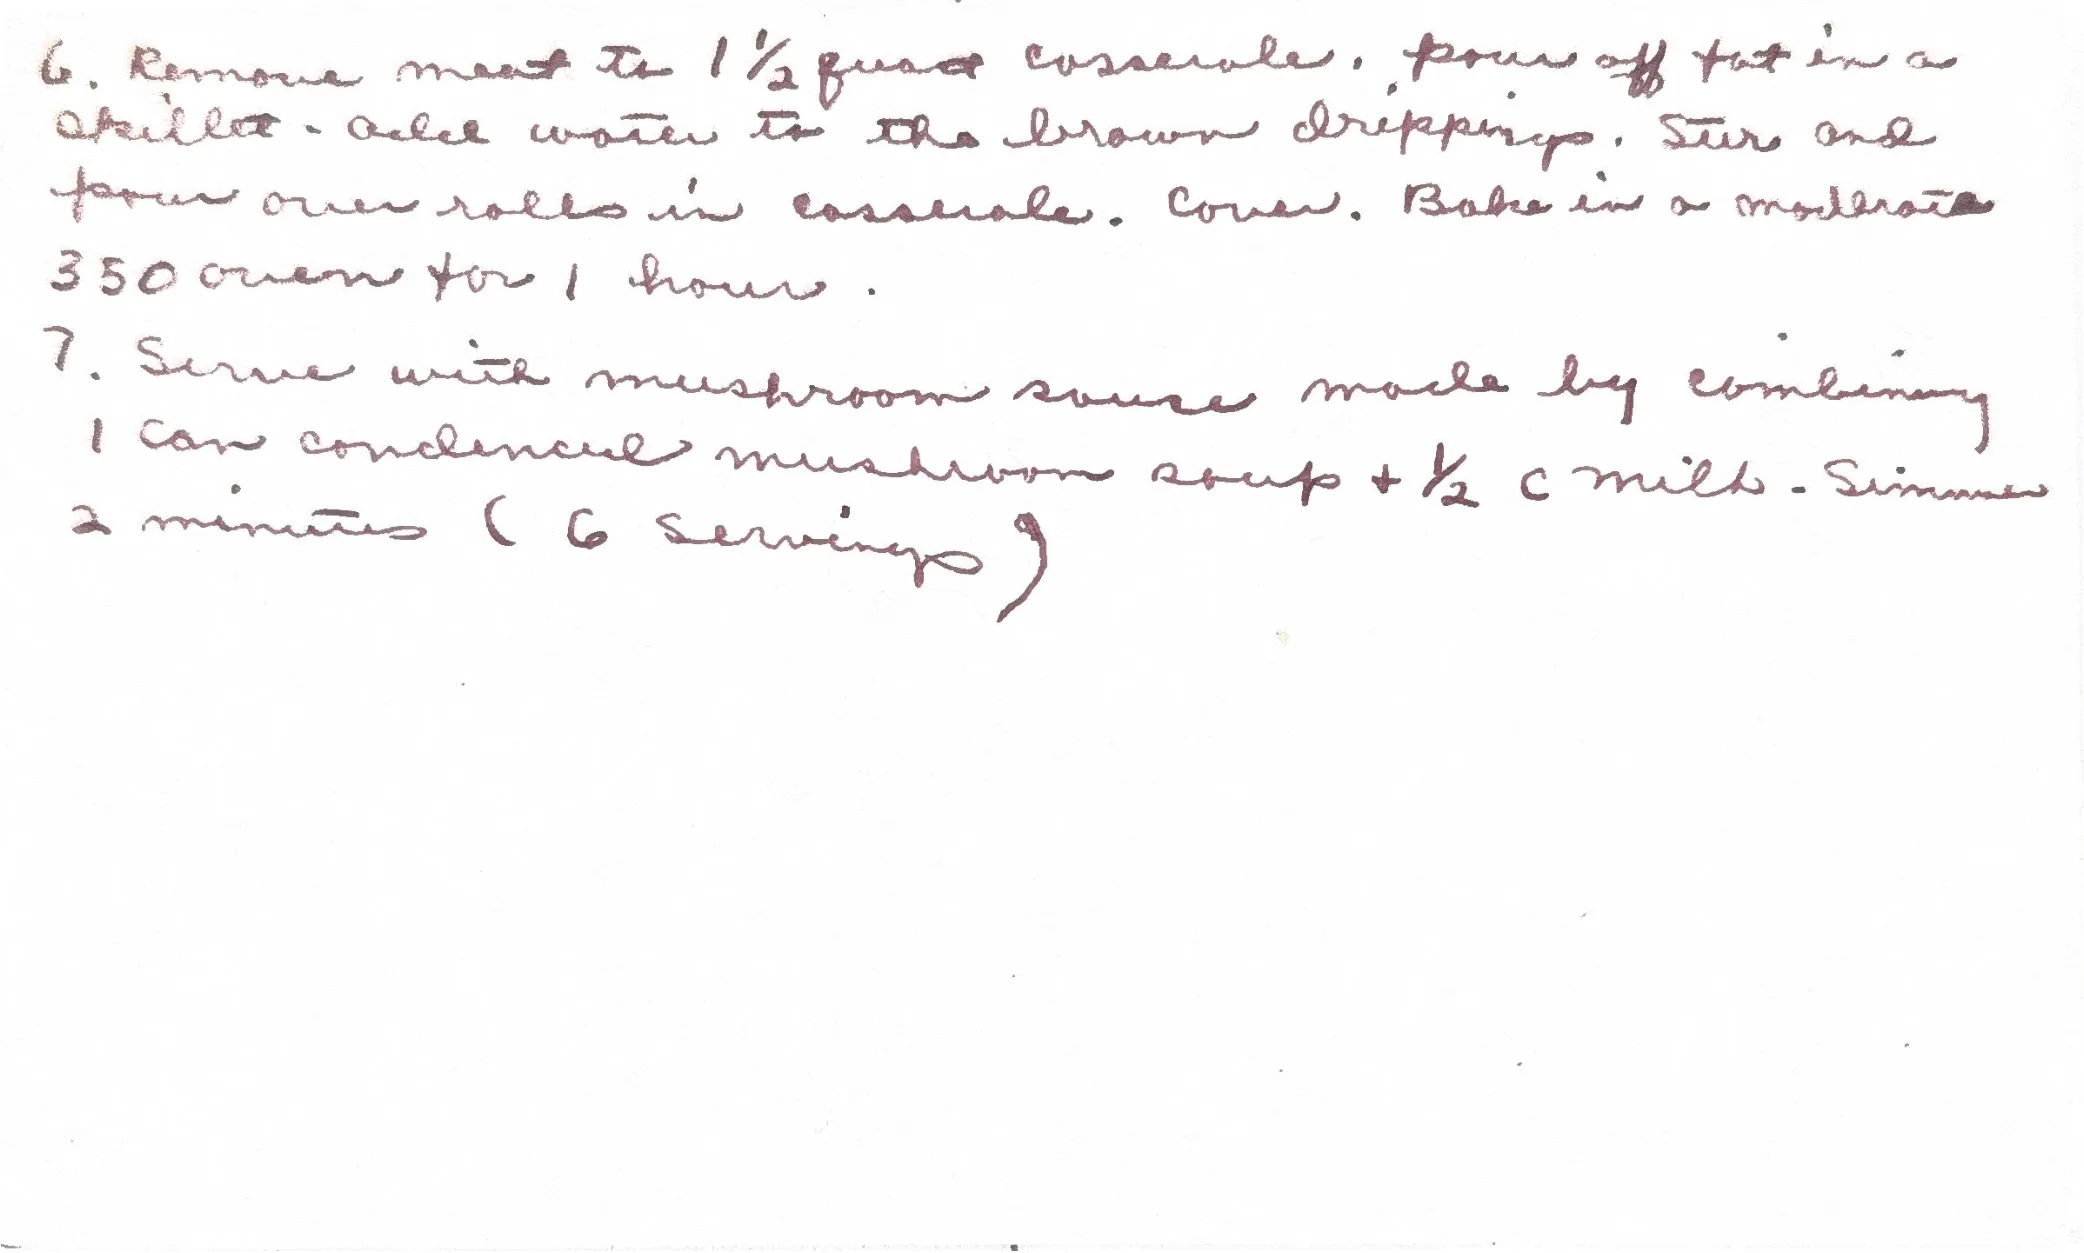 6. Remove meat to 1 1/2 quart casserole. pour off fat in a
skillet - add water to the brown drippings. Stir and
pour over rolls in casserole. Cover. Bake in a moderate
350 oven for 1 hour.
7. Serve with mushroom sauce made by combining
1 can condensed mushroom soup + 1/2 c milk - Simmer
2 minutes ( 6 servings )